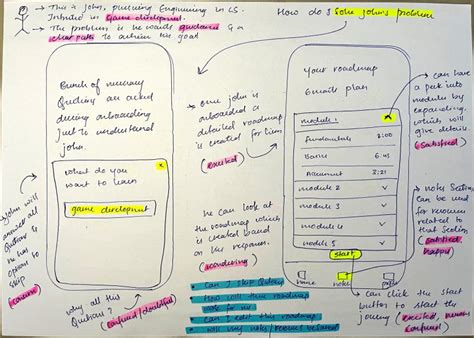 → This is John, pursuing Engineering in CS.
Intrested in Game development.
→ The problem is he wants guidance &
a clear path to achieve his goal
How do I solve John's problem
Bunch of necessary
Questions are asked
during onboarding
just to understand
john.
what do you
want to learn
x
game development
→ John will
answer all
Questions &
he has
option to
skip
why all this
Questions?
(confused/doubtful)
→ once john is
onboarded a
detailed roadmap
is created for him
(excited)
he can look at
the roadmap which
is created based
on the responses.
(wondering)
→ Can I skip Questions
→ How will this roadmap
work for me
→ Can I edit this roadmap
→ will my notes/resources be saved
Your roadmap
6 months plan
module 1
Fundamentals 2:00
Basics
Assessment 3:21
module 2
module 3
module 4
module 5
Start
Home
notes
→ can have
a peek into
modules by
expanding
which will
give details
(Satisfied)
→ notes Section
can be used
for resources
related to
that Section
(satisfied,
happy)
→ Can click the start
button to start the
journey (excited, nervous
confused)